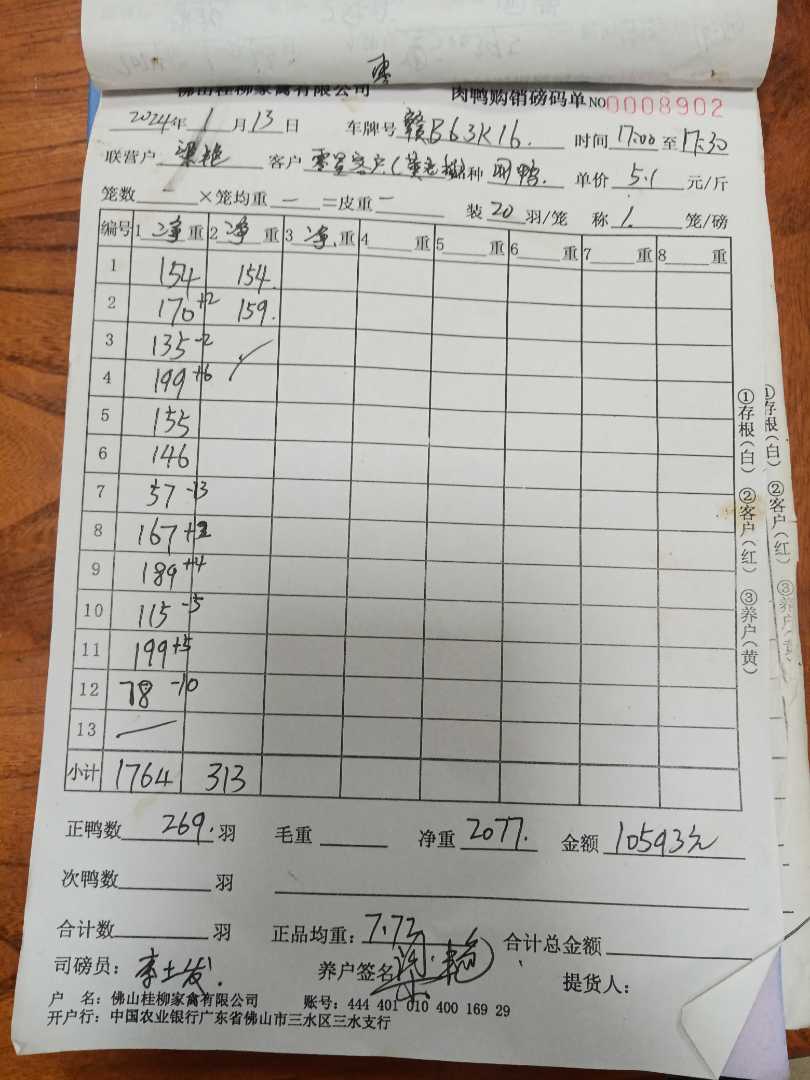 枣
佛山桂柳家禽有限公司 肉鸭购销磅码单 NO 0008902
2024年 1 月 13 日 车牌号 赣B63K16. 时间 17:00 至 17:30
联营户 梁艳 客户 零星客户 种 肉鸭. 单价 5.1 元/斤
笼数 — ×笼均重 — =皮重 — 装 20 羽/笼 称 1. 笼/磅
编号 1 净 重 2 净 重 3 净 重 4 重 5 重 6 重 7 重 8 重
1 154 154.
2 170 +2 159.
3 135 -2
4 199 +6
5 155
6 146
7 57 -13
8 167
9 189 +4
10 115 -5
11 199 +5
12 78 -10
13 —
小计 1764 313
正鸭数 269. 羽 毛重 净重 2077. 金额 10593元
次鸭数 羽
合计数 羽 正品均重: 7.72 合计总金额
司磅员: 李土发. 养户签名 梁艳 提货人:
户 名: 佛山桂柳家禽有限公司 账号: 444 401 010 400 169 29
开户行: 中国农业银行广东省佛山市三水区三水支行
①存根(白) ②客户(红) ③养户(黄)
①存根(白) ②客户(红) ③养户(黄)